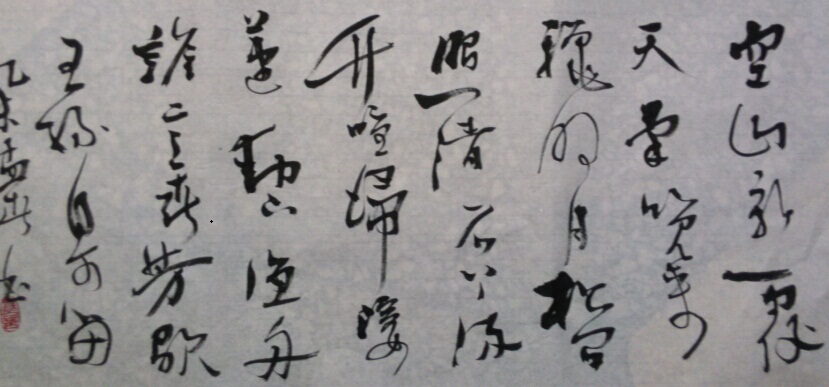 空山新雨後
天氣晚來
秋明月松間
照清石上流
竹喧歸浣女
蓮動下漁舟
隨意春芳歇
王孫自可留
乙未孟春